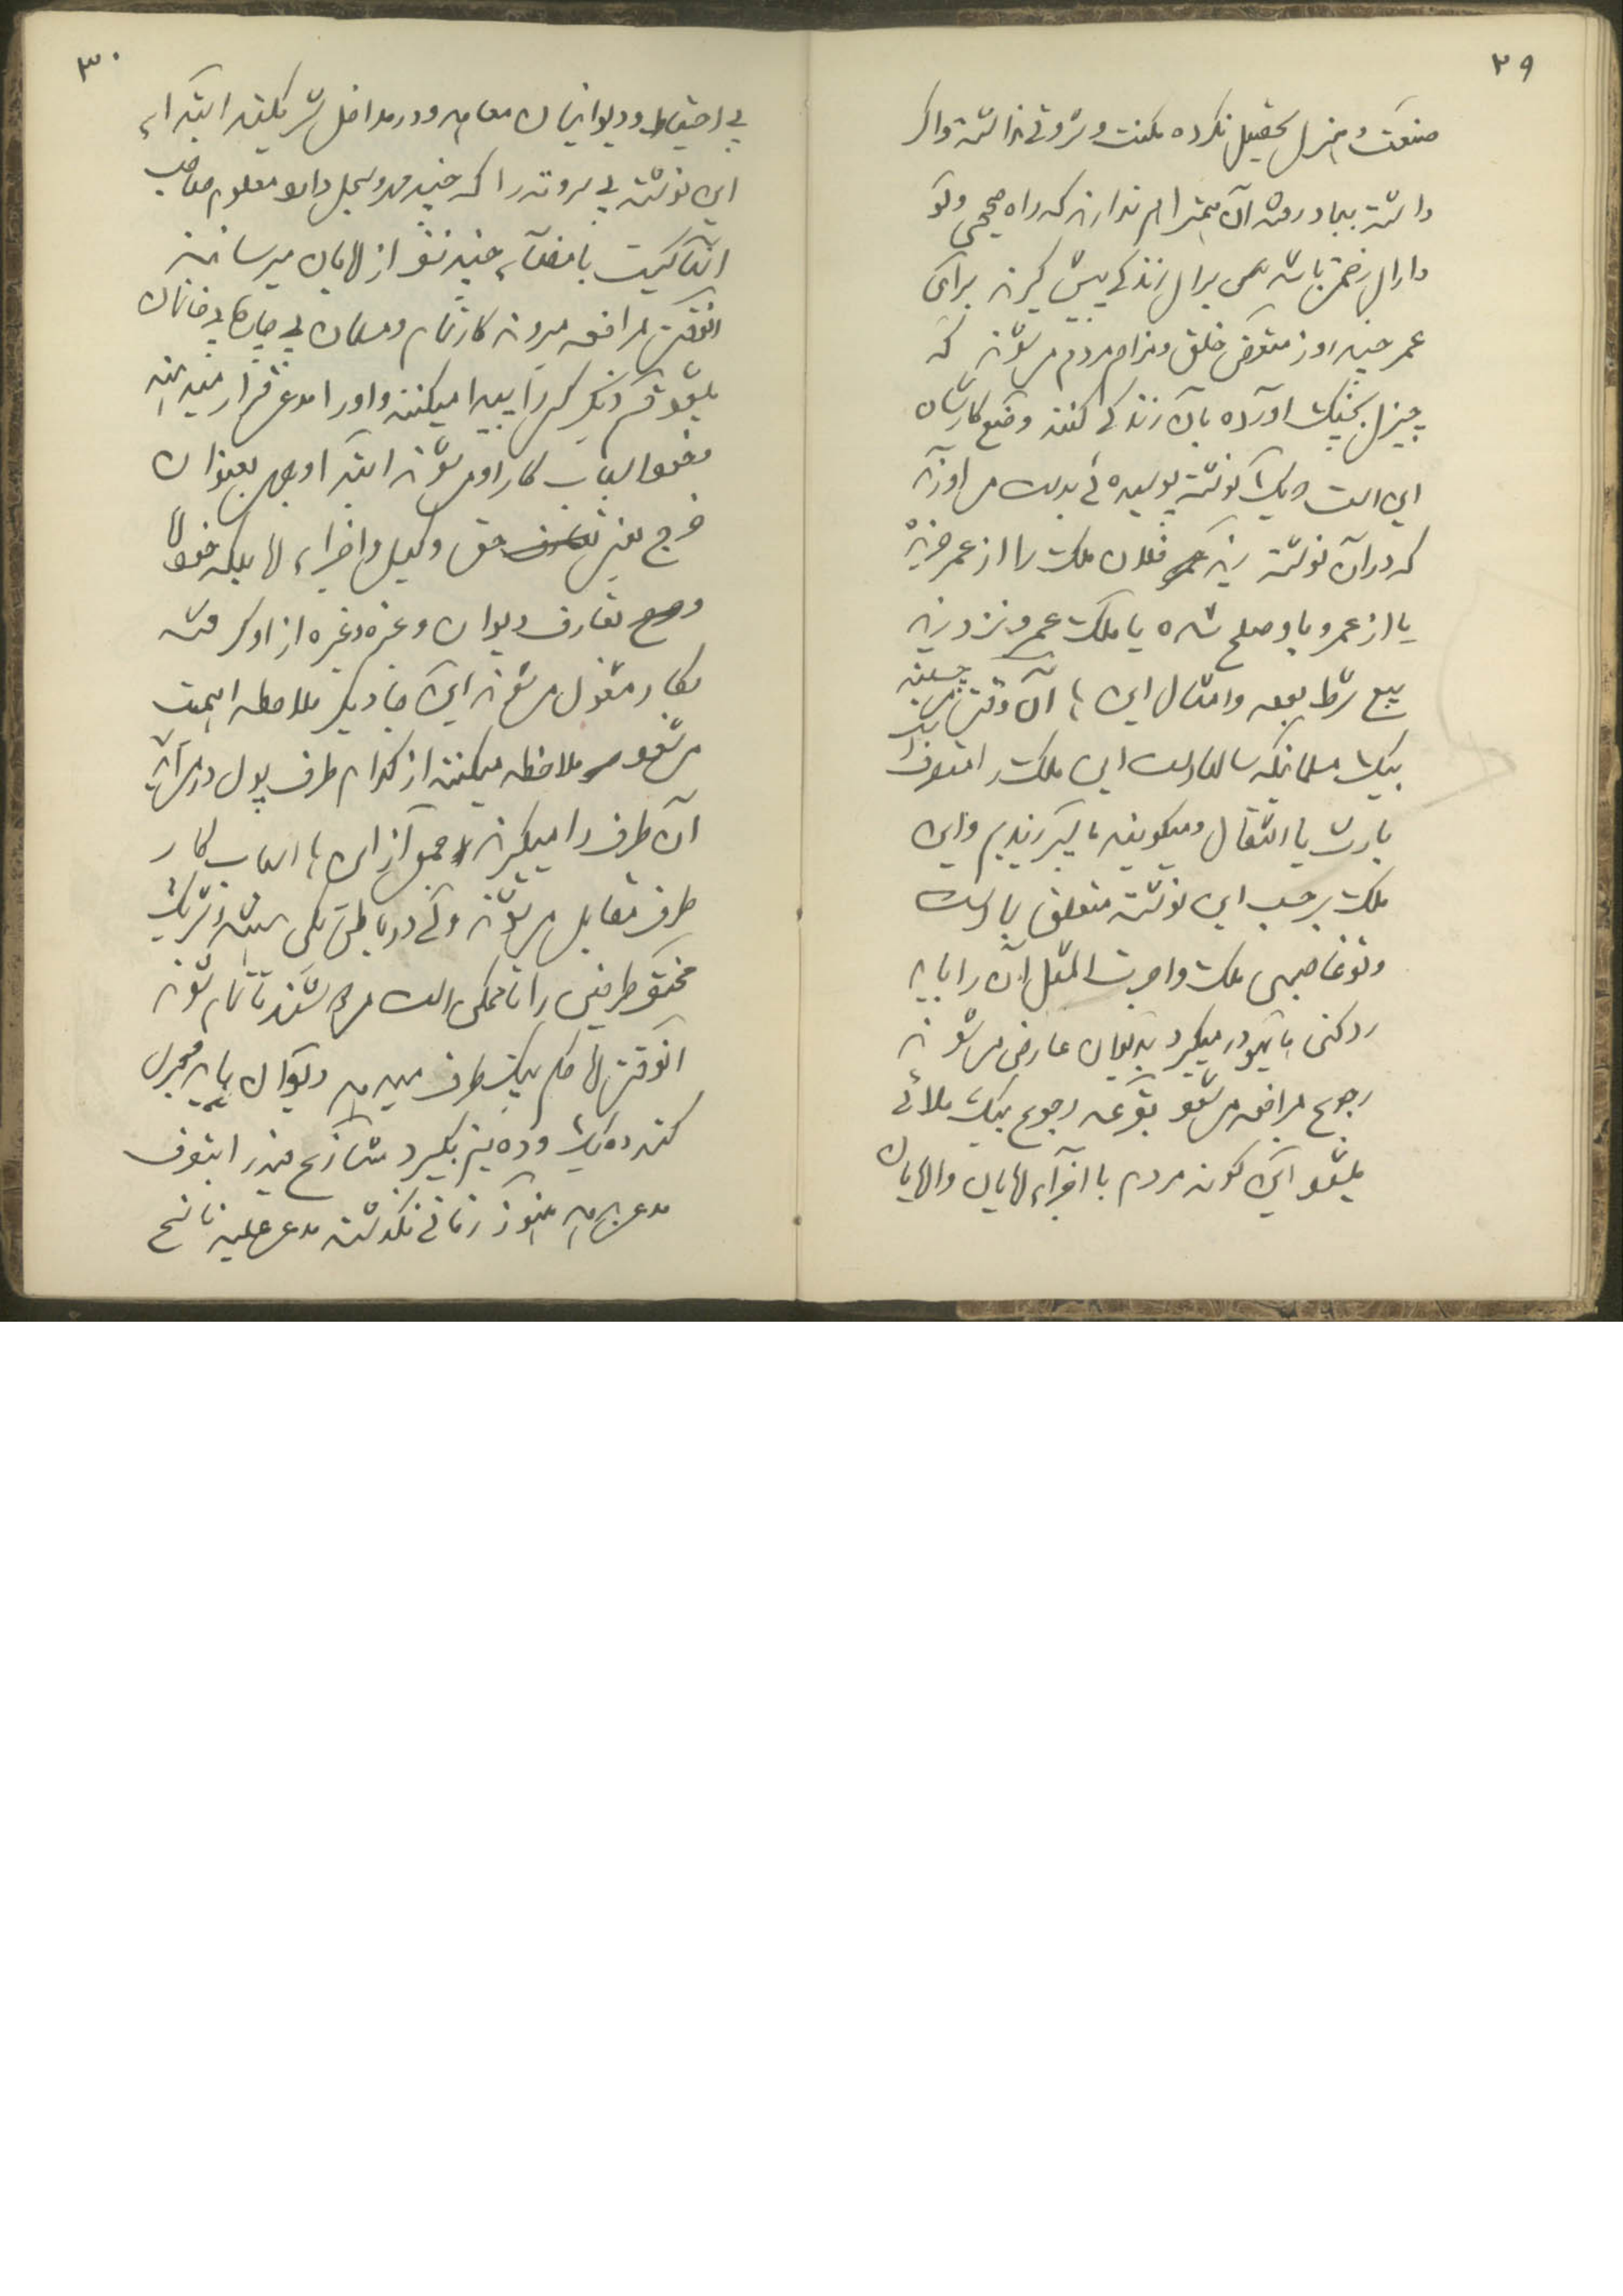 ۲۹
صنعت و هنری تحصیل نکرده مکنت و ثروتی نداشته و اگر
داشته بباد رفته آن همت را هم ندارند که راه صحیحی ولو
دارای زحمتی باشد برای زندگی پیش گیرند برای
عمر چند روز متعرض خلق و مزاحم مردم میشوند که
چیزی بچنگ آورده بآن زندگی کنند وضع کارشان
این است که یک نوشته پوسیده ئی بدست می‌آورند
که در آن نوشته زید فلان ملک را از عمر خریده
یا از عمرو باو صلح شده یا ملک عمرو نزد زید
بیع شرط بوده و امثال این ها آن وقت می چسبند
بیک مسلمانیکه سالها است این ملک را متصرف
بارث یا انتقال و میگویند ما پسر زیدیم و این
ملک برحسب این نوشته متعلق بما است
و تو غاصبی ملک و اجرت المثل آن را باید
رد کنی یا بدیوان عارض میشوند
رجوع بمرافعه میشود بقرعه رجوع بیک ملائی
میشود این گونه مردم با اجزاء ملایان و ملایان
۳۰
بی احتیاط و دیوانیان معامله و در مداخل شریکند ابتداء
این نوشته بی سر و ته را که چند مهر و سجل دارد معلوم صاحب
آنها کیست بامضاء چند نفر از ملایان میرسانند
آنوقت بمرافعه میروند کار تمام و مسلمان بی چاره بی خانمان
میشود قسم دیگر کسی را پیدا میکنند و او را مدعی قرار میدهند
اسباب کار او میشوند ابتدا وجهی بعنوان
خرج یعنی حق وکیل و اجزاء ملا بلکه خود ملا
تعارف دیوان و غیره و غیره از او گرفته
بکار مشغول میشوند این جا دیگر ملاحظه اهمیت
میشود ملاحظه میکنند از کدام طرف پول در می‌آید
آن طرف را میگیرند و جمعی از این ها اسباب کار
طرف مقابل میشوند ولی در باطن یکی هستند و شریک
مختصر طرفین را تا ممکن است میدوشند تا تمام شوند
آنوقت ملا حکم بیک طرف میدهد دیوان باید مجری
کند ده یک و ده نیم بگیرد متنازع فیه را بتصرف
مدعی بدهد هنوز زمانی نگذشته مدعی علیه ناسخ